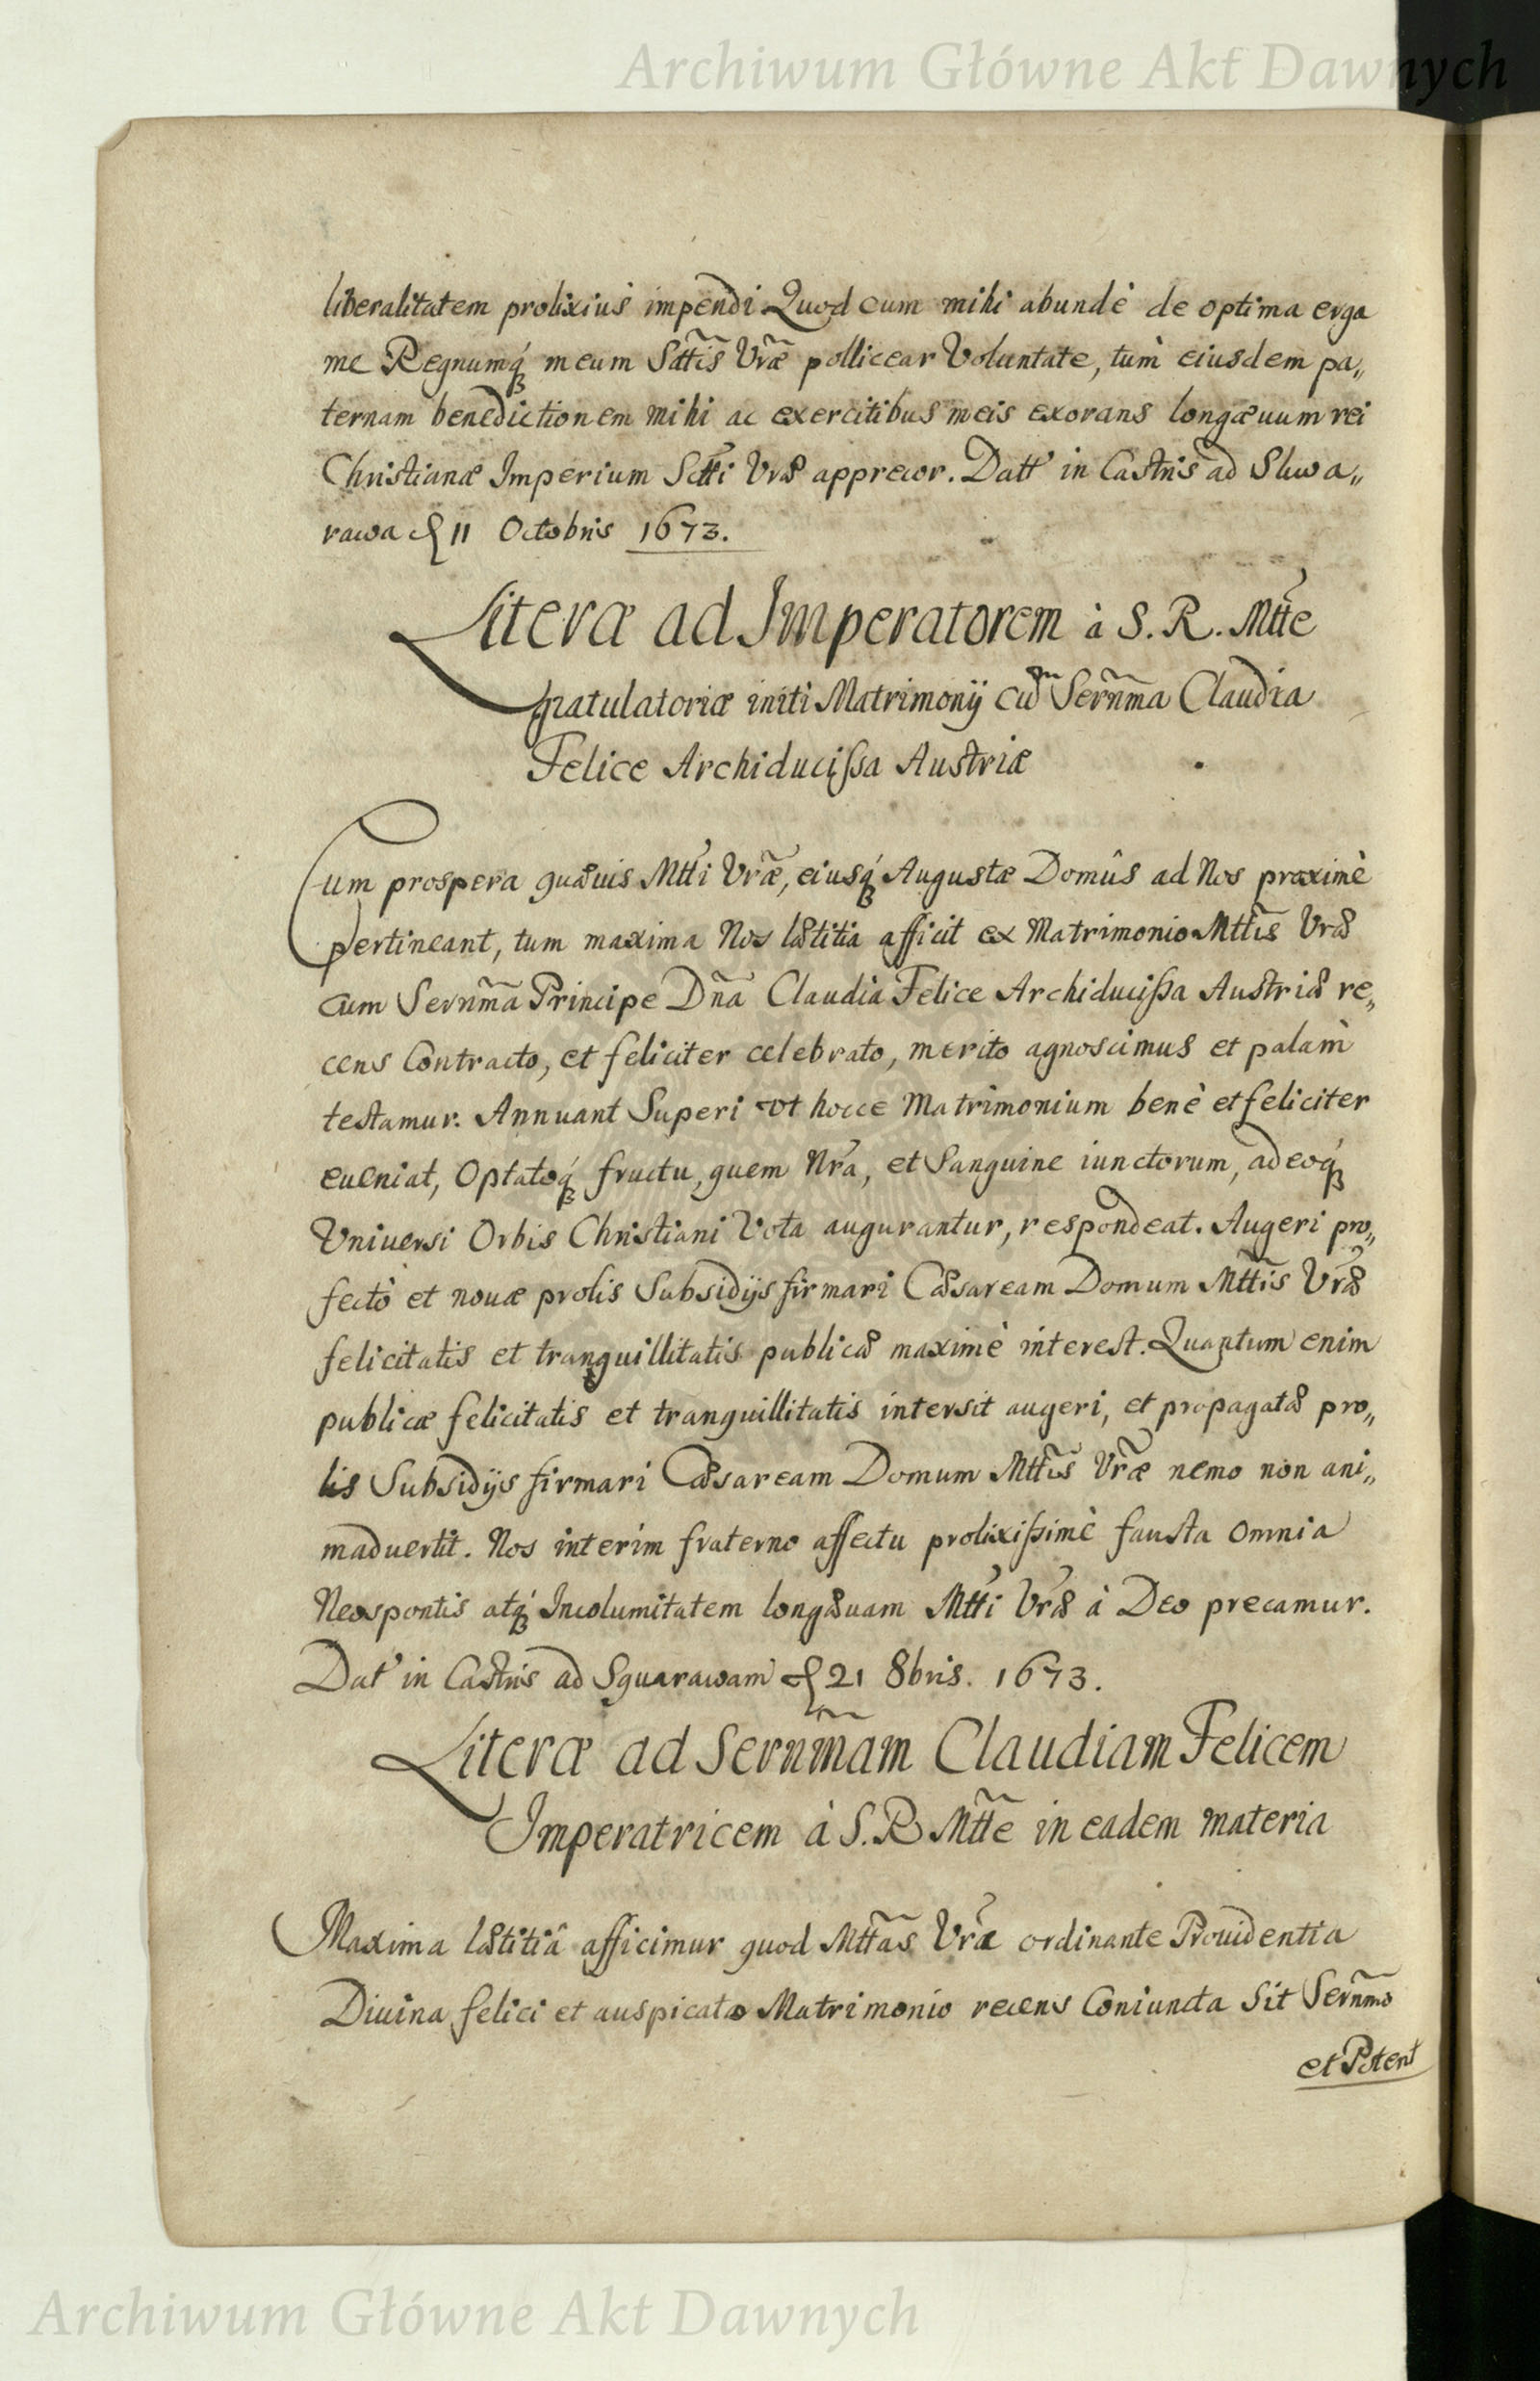 Archiwum Główne Akt Dawnych
liberalitatem prolixius impendi Quod cum mihi abundè de optima erga
me Regnumq́ꝫ meum Sttis̃ Vrãe pollicear Voluntate, tum̀ eiusdem pa„
ternam benedictionem mihi ac exercitibus meis exorans longæuum rei
Christianæ Imperium Sctti Vræ apprecor. Datt in Castris ad Slwa„
rawa d 11 Octobris 1673.
Literæ ad Imperatorem à S. R. Mtte
gratulatoriæ initi Matrimonij cum Sernm̃a Claudia
Felice Archiducissa Austriæ
Cum prospera quæuis Mtti Vrãe, eiusq́ꝫ Augustæ Domûs ad Nos proximè
pertineant, tum maxima Nos lætitia afficit ex Matrimonio Mttis̃ Vræ
cum Sernm̃a Principe Dña Claudia Felice Archiducissa Austriæ re„
cens Contracto, et feliciter celebrato, merito agnoscimus et palam̀
testamur. Annuant Superi vt hocce Matrimonium benè et feliciter
eueniat, Optatoq́ꝫ fructu, quem Nr̃a, et Sanguine iunctorum, adeoq́ꝫ
Vniuersi Orbis Christiani Vota augurantur, respondeat. Augeri pro„
fectò et nouæ prolis Subsidijs firmari Cæsaream Domum Mttis̃ Vræ
felicitatis et tranquillitatis publicæ maximè interest. Quantum enim
publicæ felicitatis et tranquillitatis intersit augeri, et propagatæ pro„
lis Subsidijs firmari Cæsaream Domum Mttis̃ Vrãe nemo non ani„
maduertit. Nos interim fraterno affectu prolixissimè fausta omnia
Neosponsis atq́ꝫ Incolumitatem longæuam Mtti Vræ à Deo precamur.
Dat in Castris ad Squarawam d 21 8bris. 1673.
Literæ ad Sernm̃am Claudiam Felicem
Imperatricem à S. R Mtte in eadem materia
Maxima lætitiâ afficimur quod Mttas̃ Vræ ordinante Prouidentia
Diuina felici et auspicato Matrimonio recens Coniuncta Sit Sernm̃o
et Potent
Archiwum Główne Akt Dawnych